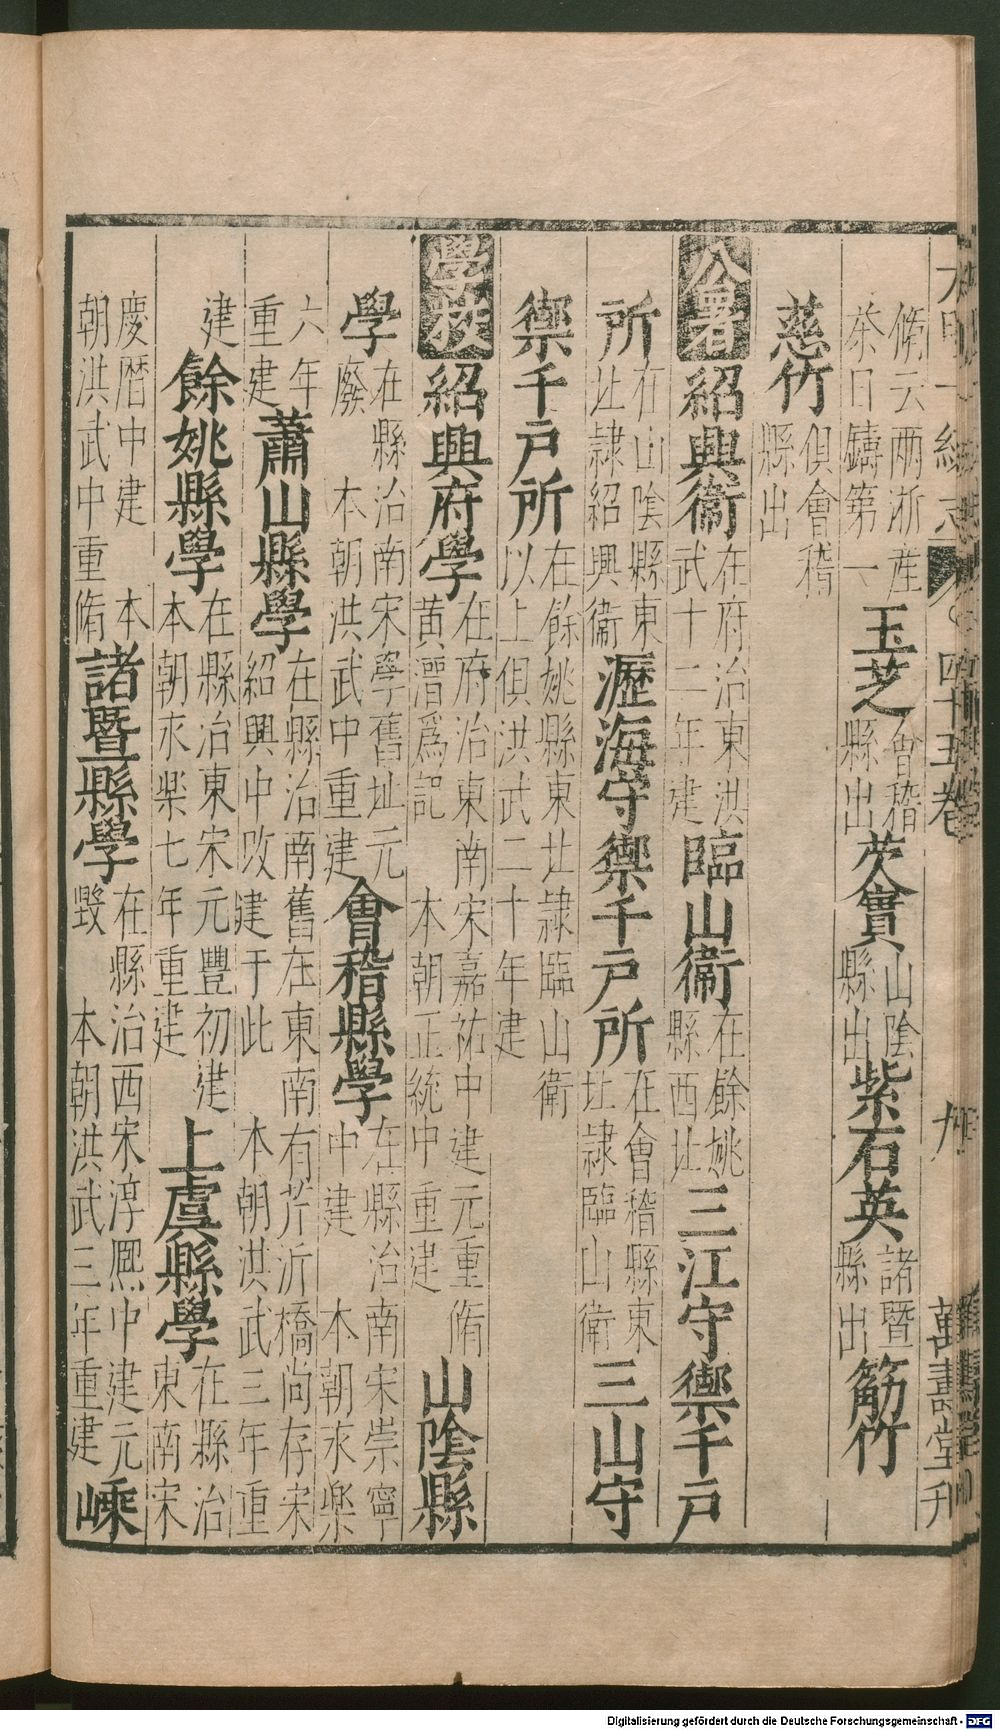 大明一統志 四十五卷 九 萬壽堂刊
脩云兩浙產茶日鑄第一 玉芝 會稽縣出 芡實 山陰縣出 紫石英 諸暨縣出 筯竹
慈竹 俱會稽縣出
公署 紹興衞 在府治東洪武十二年建 臨山衞 在餘姚縣西北 三江守禦千戶
所 在山陰縣東北隷紹興衞 瀝海守禦千戶所 在會稽縣東北隷臨山衞 三山守
禦千戶所 在餘姚縣東北隷臨山衛以上俱洪武二十年建
學校 紹興府學 在府治東南宋嘉祐中建元重脩黃溍爲記 本朝正統中重建 山陰縣
學 在縣治南宋學舊址元廢 本朝洪武中重建 會稽縣學 在縣治南宋崇寧中建 本朝永樂
六年重建 蕭山縣學 在縣治南舊在東南有芹沂橋尚存宋紹興中改建于此 本朝洪武三年重
建 餘姚縣學 在縣治東宋元豐初建 本朝永樂七年重建 上虞縣學 在縣治東南宋
慶曆中建 本朝洪武中重脩 諸暨縣學 在縣治西宋淳熈中建元毀 本朝洪武三年重建 嵊
Digitalisierung gefördert durch die Deutsche Forschungsgemeinschaft - DFG